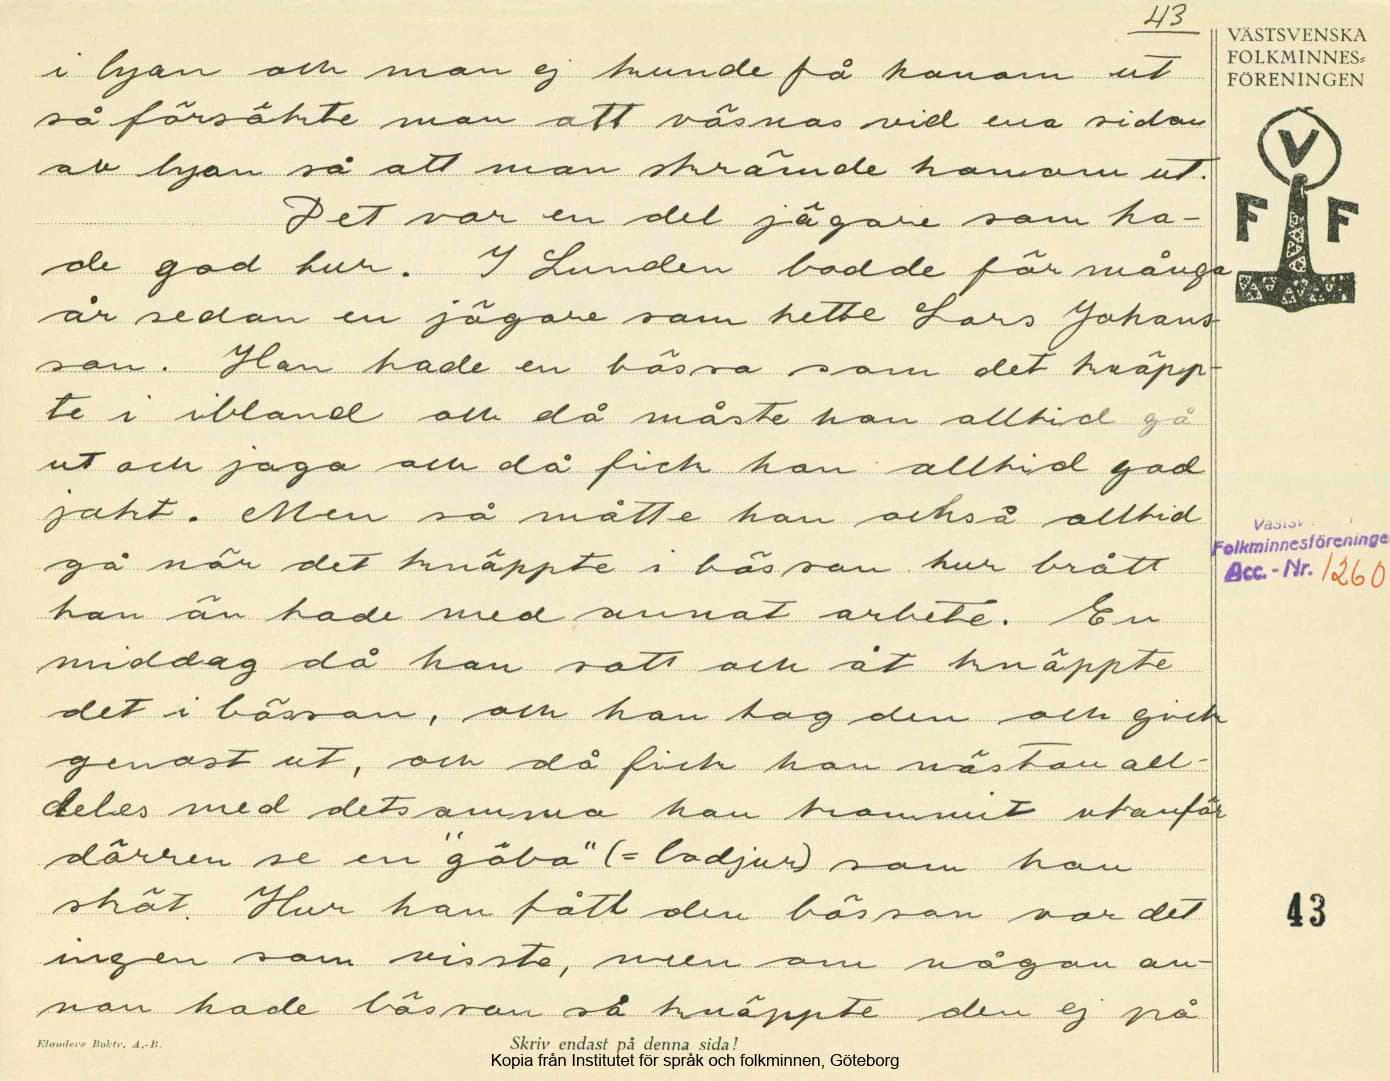 43
VÄSTSVENSKA
FOLKMINNES-
FÖRENINGEN
V
F F
i lyan och man ej kunde få honom ut
så försökte man att väsnas vid ena sidan
av lyan så att man skrämde honom ut.
Det var en del jägare som ha-
de god tur. I Lunden bodde för många
år sedan en jägare som hette Lars Johans-
son. Han hade en bössa som det knäpp-
te i ibland och då måste han alltid gå
ut och jaga och då fick han alltid god
jakt. Men så måtte han också alltid
gå när det knäppte i bössan hur brått
han än hade med annat arbete. En
middag då han satt och åt knäppte
det i bössan, och han tog den och gick
genast ut, och då fick han nästan all-
deles med detsamma han kommit utanför
dörren se en "göba" (= lodjur) som han
sköt. Hur han fått den bössan var det
ingen som visste, men om någon an-
nan hade bössan så knäppte den ej på
Folkminnesföreningen
Acc.-Nr. 1260
43
Elanders Boktr. A.-B.
Skriv endast på denna sida!
Kopia från Institutet för språk och folkminnen, Göteborg